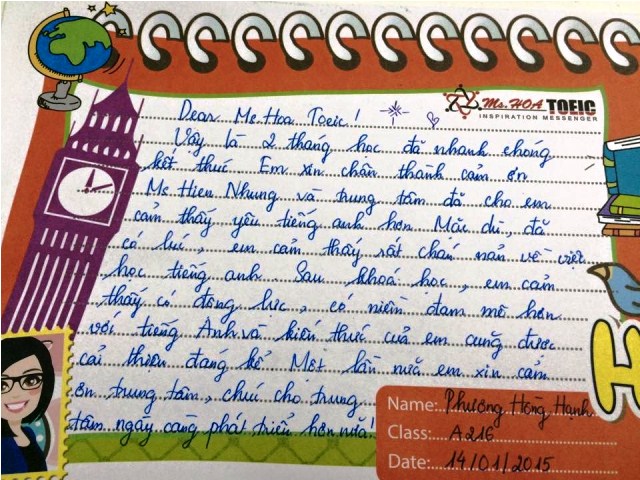 Ms. HOA TOEIC
INSPIRATION MESSENGER
Dear Ms. Hoa Toeic!
Vậy là 2 tháng học đã nhanh chóng
kết thúc Em xin chân thành cảm ơn
Ms Hien Nhung và trung tâm đã cho em
cảm thấy yêu tiếng anh hơn Mặc dù, đã
có lúc, em cảm thấy rất chán nản về việc
học tiếng anh Sau khoá học, em cảm
thấy có động lực, có niềm đam mê hơn
với tiếng Anh và kiến thức của em cũng được
cải thiện đáng kể Một lần nữa em xin cảm
ơn trung tâm, chúc cho trung
tâm ngày càng phát triển hơn nữa!
Name: Phương Hồng Hạnh
Class: A216
Date: 14/01/2015